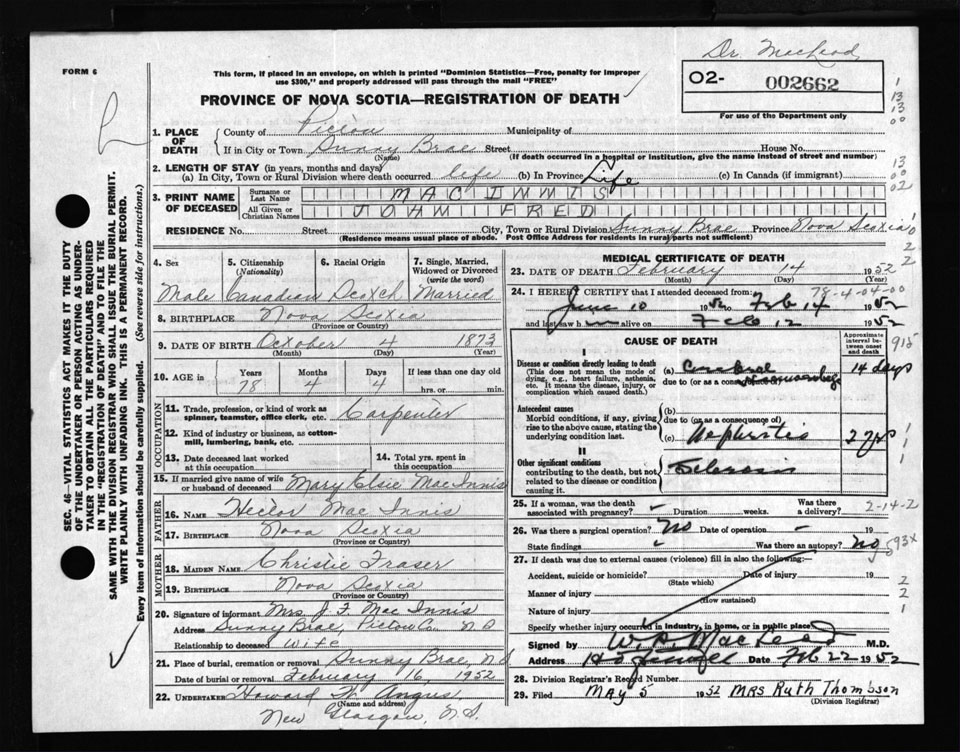 Dr. MacLeod
FORM 6
This form, if placed in an envelope, on which is printed "Dominion Statistics—Free, penalty for improper
use $300," and properly addressed will pass through the mail "FREE"
O2- 002662
For use of the Department only
PROVINCE OF NOVA SCOTIA—REGISTRATION OF DEATH
1. PLACE OF DEATH
County of Pictou Municipality of
If in City or Town Sunny Brae Street House No.
(Name) (If death occurred in a hospital or institution, give the name instead of street and number)
2. LENGTH OF STAY (in years, months and days)
(a) In City, Town or Rural Division where death occurred life (b) In Province Life (c) In Canada (if immigrant)
3. PRINT NAME OF DECEASED
Surname or Last Name MAC INNIS
All Given or Christian Names JOHN FRED
RESIDENCE No. Street City, Town or Rural Division Sunny Brae Province Nova Scotia
(Residence means usual place of abode. Post Office Address for residents in rural parts not sufficient)
4. Sex Male
5. Citizenship (Nationality) Canadian
6. Racial Origin Scotch
7. Single, Married, Widowed or Divorced (write the word) Married
8. BIRTHPLACE Nova Scotia
(Province or Country)
9. DATE OF BIRTH October 4 1873
(Month) (Day) (Year)
10. AGE in Years 78 Months 4 Days 4 If less than one day old
hrs. or min.
OCCUPATION
11. Trade, profession, or kind of work as spinner, teamster, office clerk, etc. Carpenter
12. Kind of industry or business, as cotton-mill, lumbering, bank, etc.
13. Date deceased last worked at this occupation
14. Total yrs. spent in this occupation
15. If married give name of wife or husband of deceased Mary Elsie MacInnis
FATHER
16. NAME Hector Mac Innis
17. BIRTHPLACE Nova Scotia
(Province or Country)
MOTHER
18. MAIDEN NAME Christie Fraser
19. BIRTHPLACE Nova Scotia
(Province or Country)
20. Signature of informant Mrs. J. F. Mac Innis
Address Sunny Brae, Pictou Co. N S
Relationship to deceased Wife
21. Place of burial, cremation or removal Sunny Brae, N S
Date of burial or removal February 16, 1952
22. UNDERTAKER Howard W. Angus
(Name and address)
New Glasgow, N.S.
MEDICAL CERTIFICATE OF DEATH
23. DATE OF DEATH February 14 1952
(Month)
78-4-04-00
24. I HEREBY CERTIFY that I attended deceased from:
June 10 1950 to Feb 14 1952
and last saw h im alive on Feb 12 1952
CAUSE OF DEATH
Approximate interval between onset and death
I
Disease or condition directly leading to death
(This does not mean the mode of dying, e.g., heart failure, asthenia, etc. It means the disease, injury, or complication which caused death.)
(a) Cerebral Haemorrhage 14 days
due to (or as a consequence of)
Antecedent causes
Morbid conditions, if any, giving rise to the above cause, stating the underlying condition last.
(b)
due to (or as a consequence of)
(c) Nephritis 2 yrs
II
Other significant conditions
contributing to the death, but not related to the disease or condition causing it.
Sclerosis
25. If a woman, was the death associated with pregnancy? - Duration weeks. Was there a delivery?
2-14-2
26. Was there a surgical operation? No Date of operation - 19
State findings Was there an autopsy? no
27. If death was due to external causes (violence) fill in also the following:
Accident, suicide or homicide? Date of injury 19
(State which)
Manner of injury
(How sustained)
Nature of injury
Specify whether injury occurred in industry, in home, or in public place
Signed by W. A. MacLeod M.D.
Address Hopewell Date Feb 22 1952
28. Division Registrar's Record Number
29. Filed May 5 1952 Mrs Ruth Thompson
(Division Registrar)
SEC. 46—VITAL STATISTICS ACT MAKES IT THE DUTY
OF THE UNDERTAKER OR PERSON ACTING AS UNDERTAKER
TO OBTAIN ALL THE PARTICULARS REQUIRED
IN THE "REGISTRATION OF DEATH" AND TO FILE THE
SAME WITH THE DIVISION REGISTRAR WHO SHALL ISSUE THE BURIAL PERMIT.
WRITE PLAINLY WITH UNFADING INK. THIS IS A PERMANENT RECORD.
Every item of information should be carefully supplied. (See reverse side for instructions.)